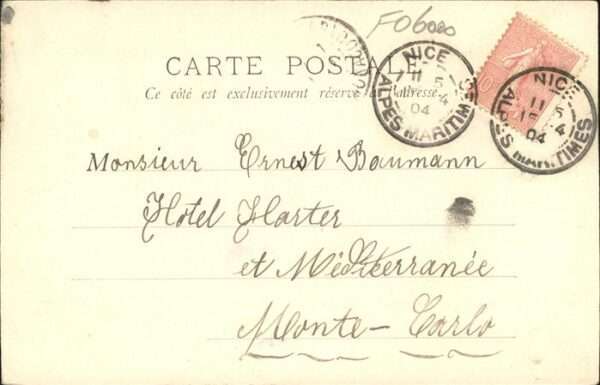 F06020
CARTE POSTALE
Ce côté est exclusivement réservé à l'adresse
NICE
11
5
4
04
ALPES MARITIMES
NICE
11 5
15 4
04
ALPES MARITIMES
Monsieur Ernest Baumann
Hôtel Harter
et Méditerranée
Monte-Carlo